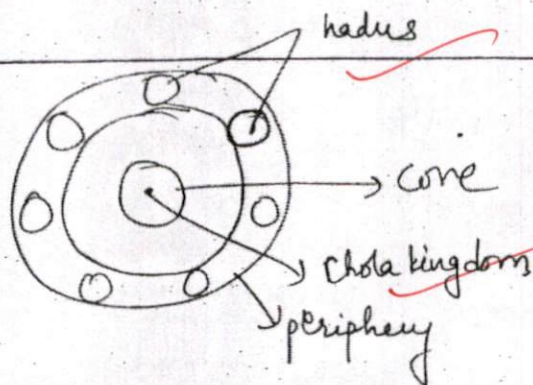 nadus
core
Chola kingdom
periphery